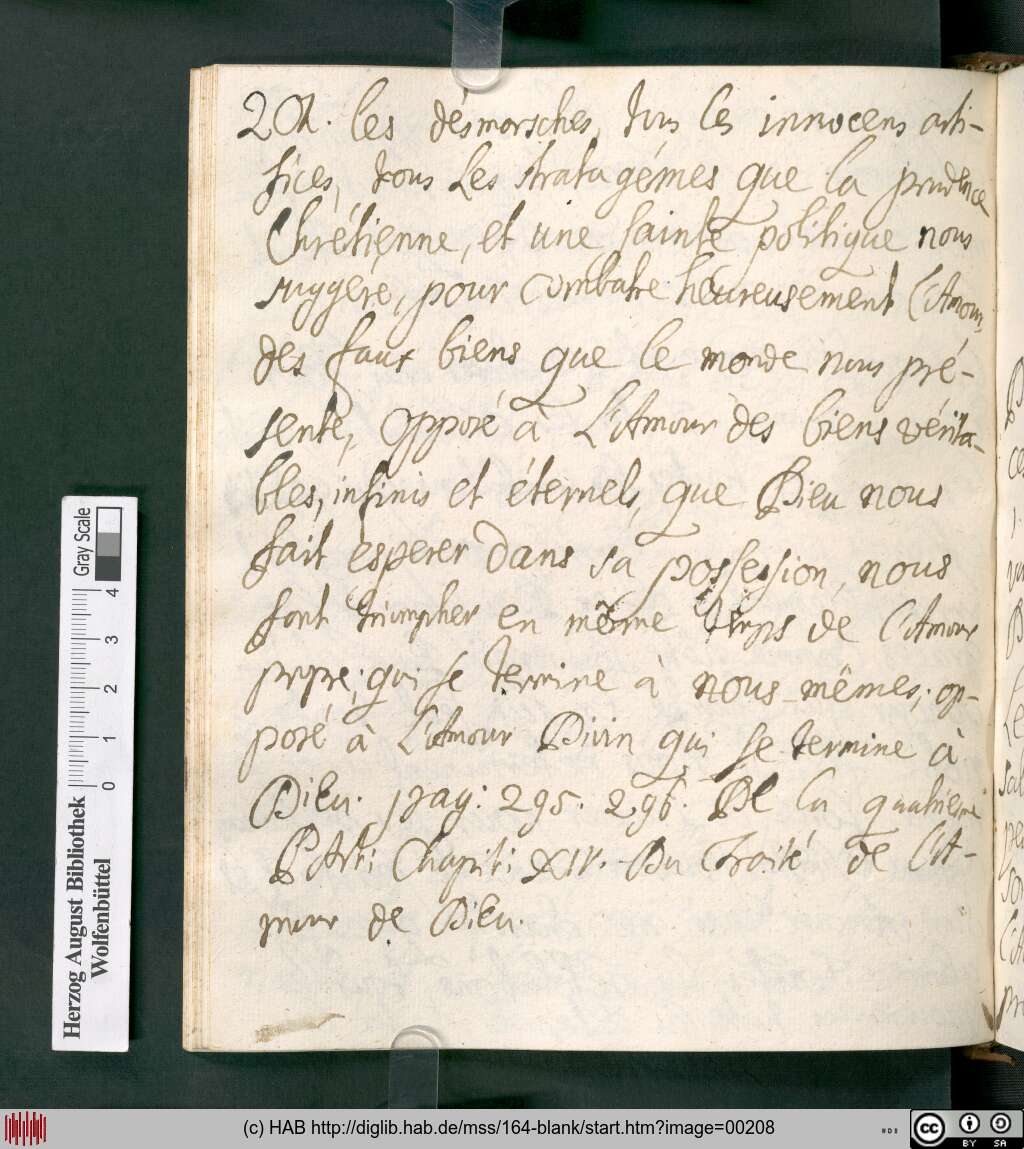 202. les désmarsches, tous les innocens arti-
fices, tous Les stratagémes que la prudence
Chrétienne, et une sainte politique nous
suggere, pour combatre heureusement l'Amour,
des faux biens que le monde nous pré-
sente, opposé à L'Amour des biens vérita-
bles, infinis et éternels, que Dieu nous
fait esperer dans sa possession, nous
font triumpher en même temps de l'Amour
propre; qui se termine à nous-mêmes; op-
posé à L'Amour Divin qui se termine à
Dieu. pag: 295. 296. De la quatriéme
PArt: Chapit: XIV. Du Traité de l'A-
mour de Dieu.
Gray Scale
0 1 2 3 4
Herzog August Bibliothek
Wolfenbüttel
(c) HAB http://diglib.hab.de/mss/164-blank/start.htm?image=00208
cc BY SA